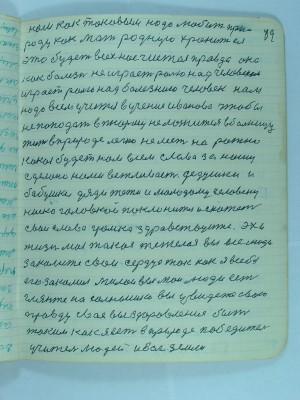 нам как таковым надо любит при-
роду как мат родную хранится
это будет всех нас чистая правда она
как болезн не играет ролю над человеком
играет роль над болезнию человек нам
надо всем учится в учение иванова чтобы
не попадат в тюрму не ложится в больницу
жит в природе легко
какая будет нам всем слава за нашу
сделано нами вежливаст дедушки и
бабушка дяди тети и молодому человеку
низко головкой поклонится и сказат
свои слова громка здравствуйте. эх и
жизнь моя такая тяжелая вы все люди
закалите свое сердце так как я в себе
его закалил милаи вы мои люди
гляньте на солнышко вы увидете свою
правду свое выздоровление быт
таким как я ест в природе победител
учител людей и вас земли